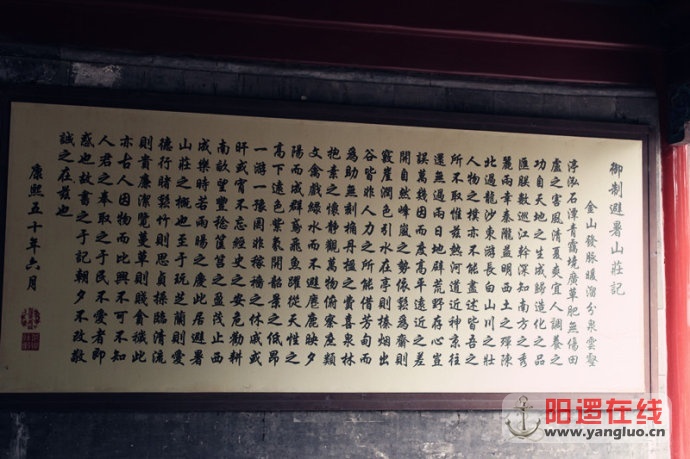 御制避暑山莊記
金山發脉暖溜分泉雲壑
渟泓石潭青靄境廣草肥無傷田
廬之害風清夏爽宜人調養之
功自天地之生成歸造化之品
匯朕數巡江幹深知南方之秀
麗兩幸秦隴益明西土之殫陳
北過龍沙東游長白山川之壯
人物之樸亦不能盡述皆吾之
所不取惟兹熱河道近神京往
還無過兩日地辟荒野存心豈
誤萬幾因而度高平遠近之差
開自然峰嵐之勢依鬆爲齋則
竅崖潤色引水在亭則榛烟出
谷皆非人力之所能借芳甸而
爲助無刻桷丹楹之費喜泉林
抱素之懷静觀萬物俯察庶類
文禽戲緑水而不避麀鹿映夕
陽而成群鳶飛魚躍從天性之
高下遠色紫氛開韶景之低昂
一游一豫罔非稼穡之休戚或
旰或宵不忘經史之安危勸耕
南畝望豐稔筐筥之盈茂止西
成樂時若雨暘之慶此居避暑
山莊之概也至于玩芝蘭則愛
德行睹鬆竹則思貞操臨清流
則貴廉潔覽蔓草則賤貪穢此
亦古人因物而比興不可不知
人君之奉取之于民不愛者即
惑也故書之于記朝夕不改敬
誠之在兹也
康熙五十年六月
阳逻在线
www.yangluo.cn